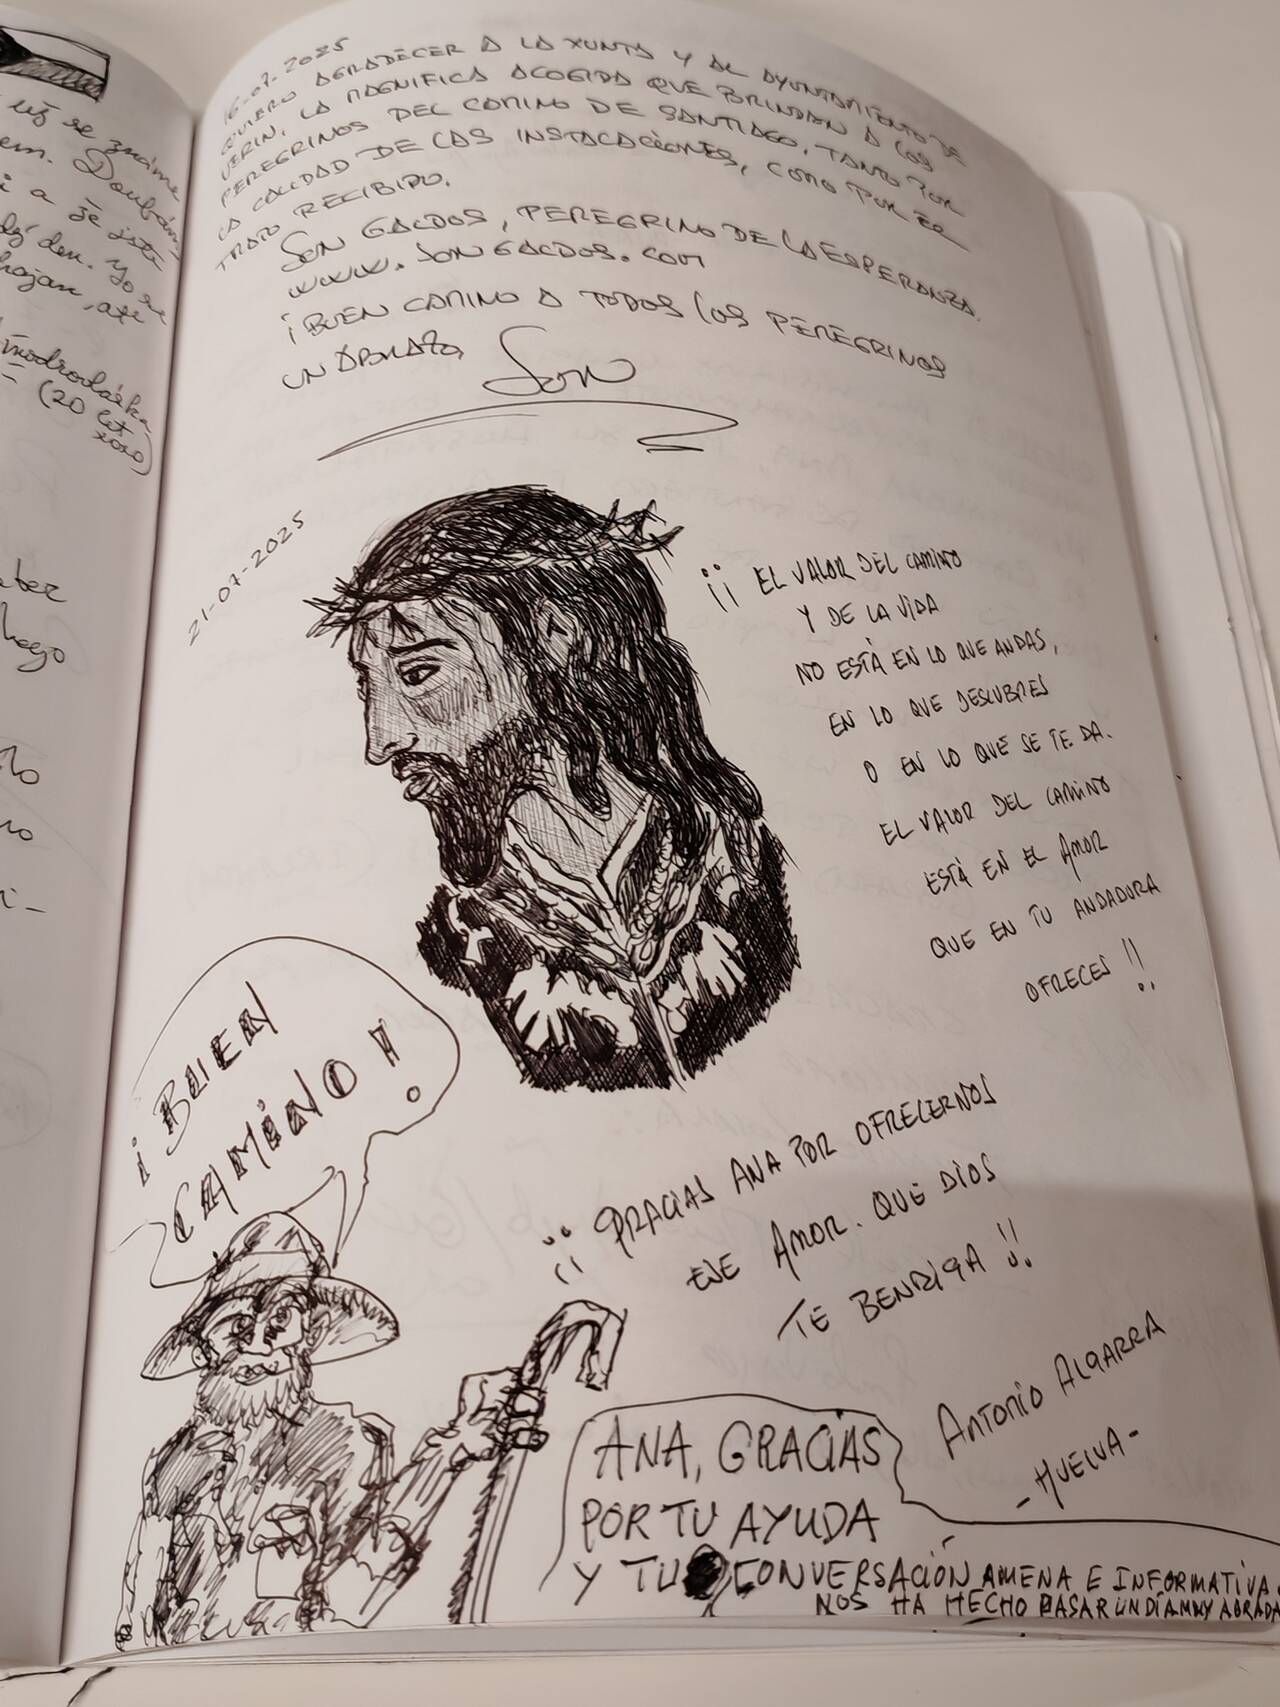 už se známe
em. Doufám,
i a že jste
den. yo se
ate
modrooláska
(20 let
2020)
16-07-2025
QUIERO AGRADECER A LA XUNTA Y AL AYUNTAMIENTO DE
VERIN, LA MAGNIFICA ACOGIDA QUE BRINDAN A LOS
PEREGRINOS DEL CAMINO DE SANTIAGO, TANTO POR
LA CALIDAD DE LAS INSTALACIONES, COMO POR EL
TRATO RECIBIDO.
SON GALDOS, PEREGRINO DE LA ESPERANZA.
www.SONGALDOS.com
¡BUEN CAMINO A TODOS LOS PEREGRINOS
UN ABRAZO, Son
21-07-2025
¡¡ EL VALOR DEL CAMINO
Y DE LA VIDA
NO ESTÁ EN LO QUE ANDAS,
EN LO QUE DESCUBRES
O EN LO QUE SE TE DA.
EL VALOR DEL CAMINO
ESTÁ EN EL AMOR
QUE EN TU ANDADURA
OFRECES !!
¡BUEN
CAMINO!
¡¡ GRACIAS ANA POR OFRECERNOS
ESE AMOR. QUE DIOS
TE BENDIGA !!
ANTONIO ALGARRA
-HUELVA-
ANA, GRACIAS
POR TU AYUDA
Y TU CONVERSACIÓN AMENA E INFORMATIVA.
NOS HA HECHO PASAR UN DÍA MUY AGRADA